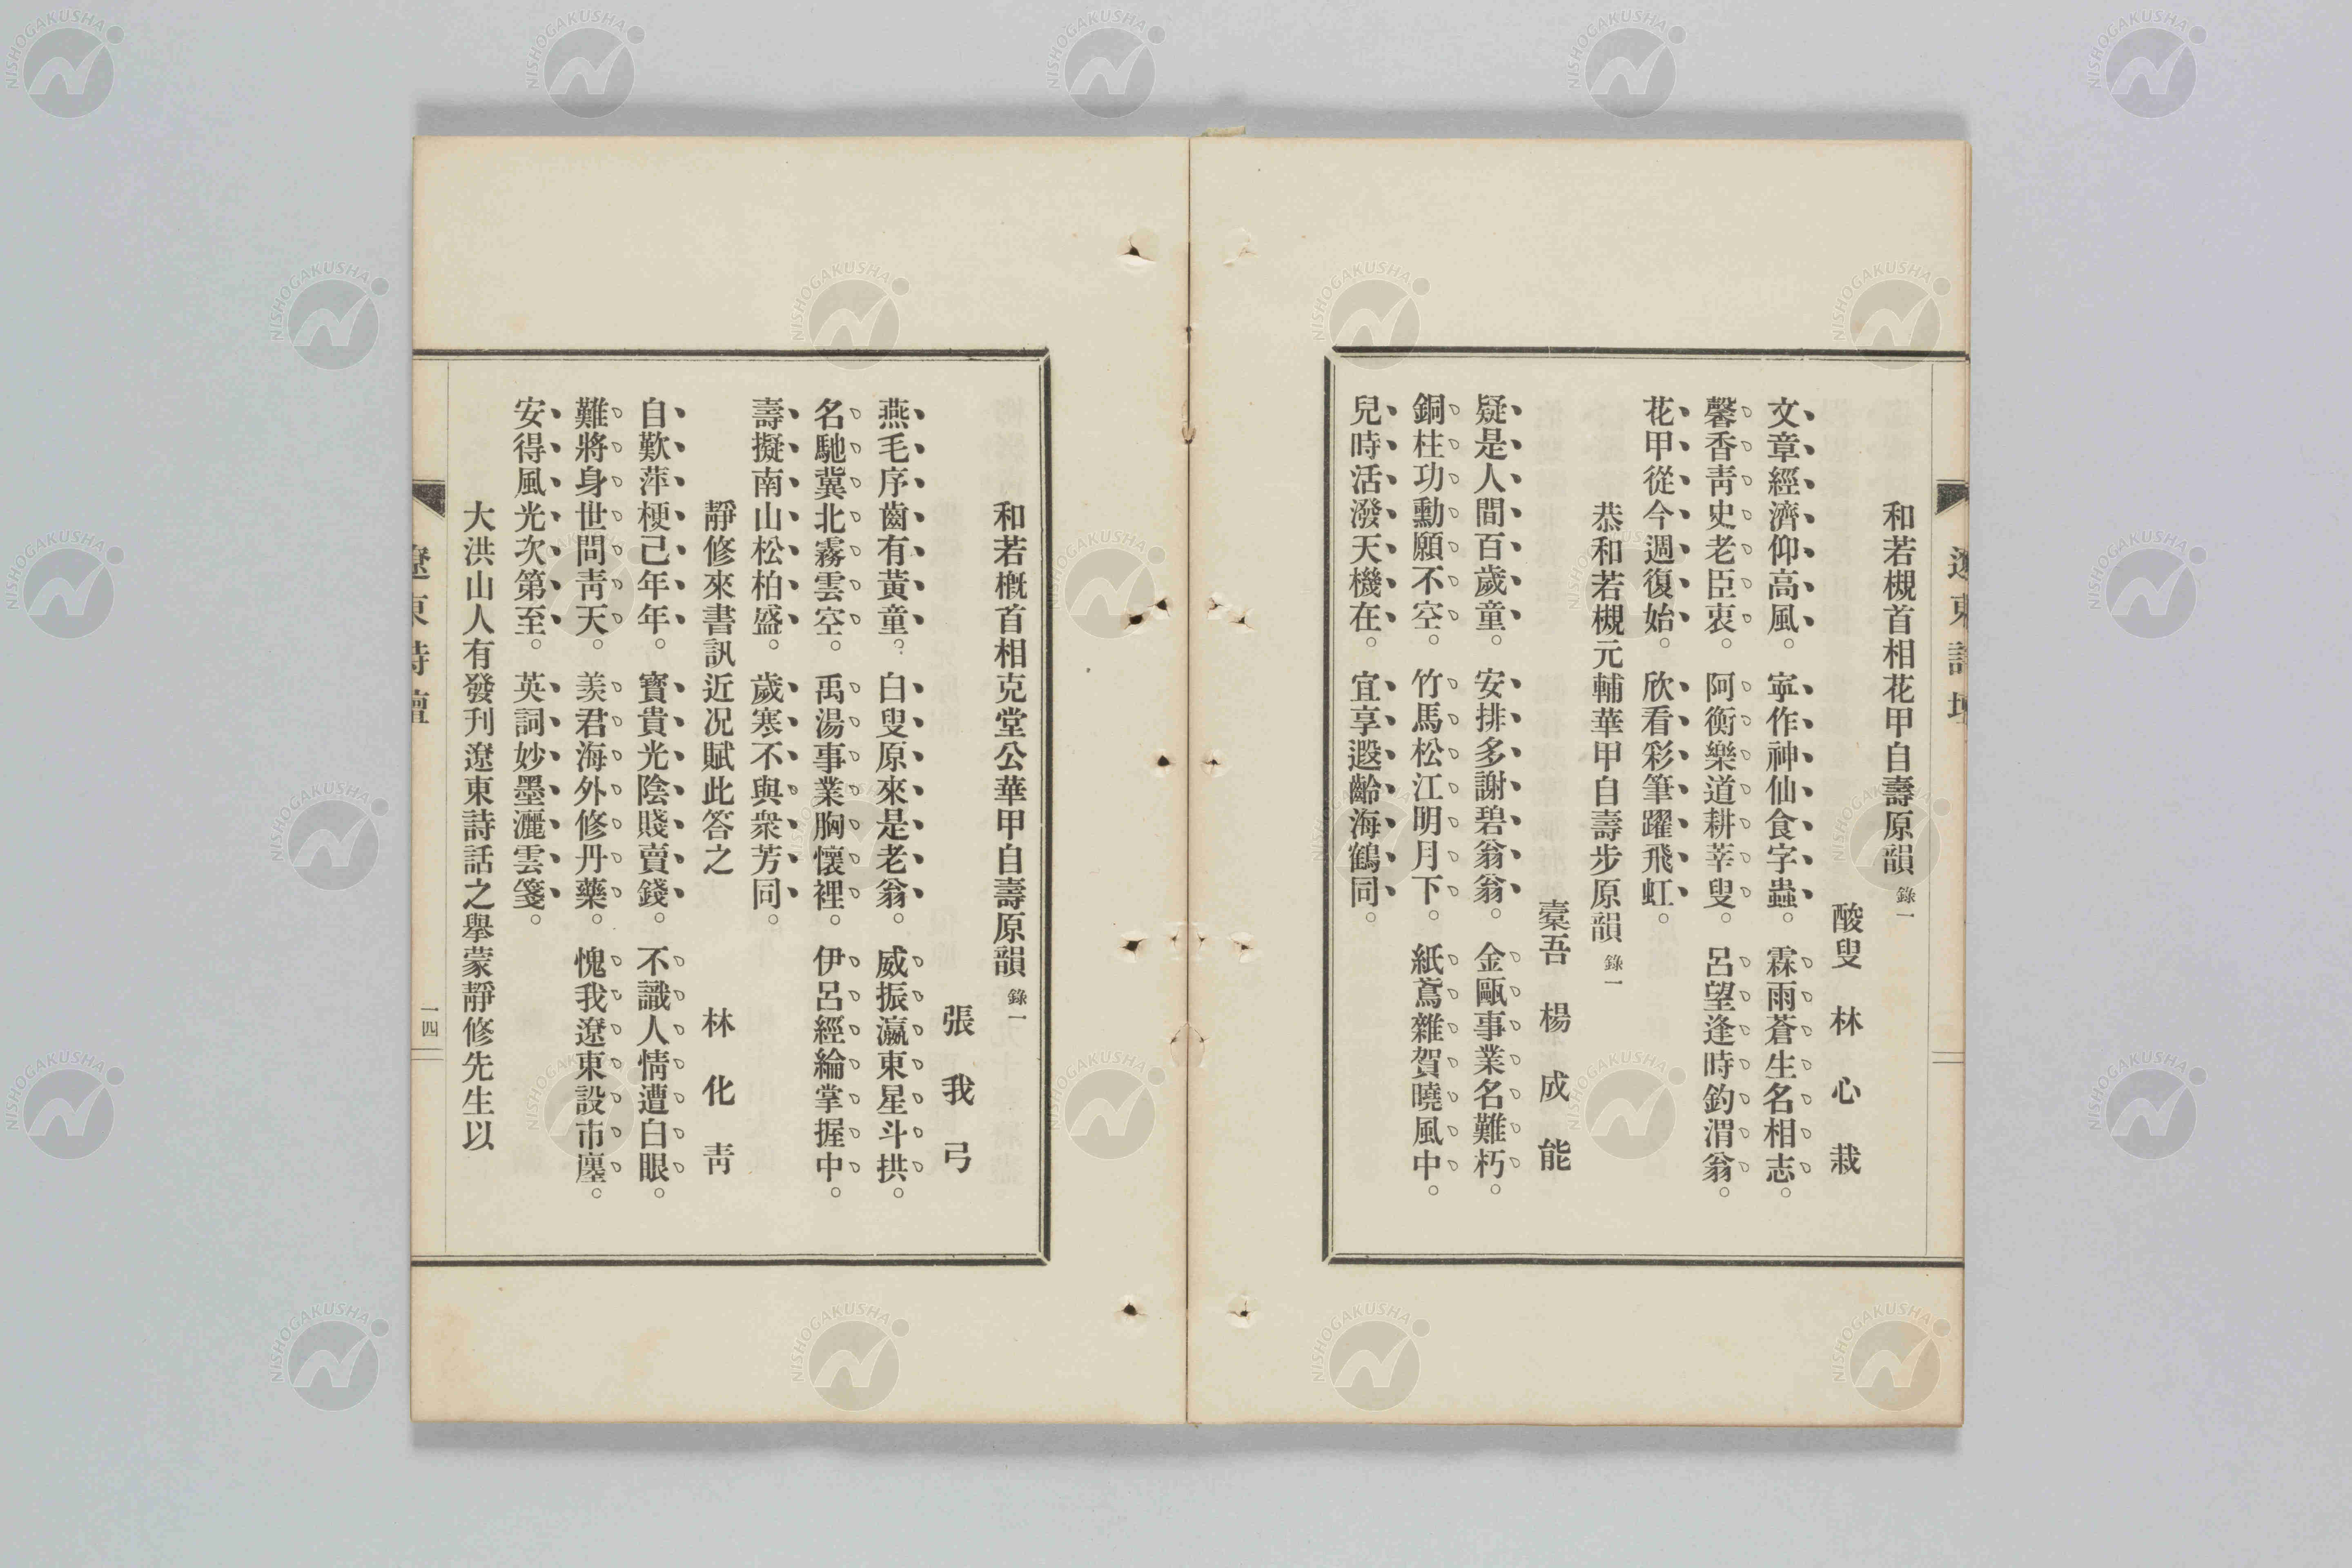 遼東詩壇
和若槻首相花甲自壽原韻 錄一
酸叟 林心栽
文章經濟仰高風。寧作神仙食字蟲。霖雨蒼生名相志。
馨香靑史老臣衷。阿衡樂道耕莘叟。呂望逢時釣渭翁。
花甲從今週復始。欣看彩筆躍飛虹。
恭和若槻元輔華甲自壽步原韻 錄一
櫜吾 楊成能
疑是人間百歲童。安排多謝碧翁翁。金甌事業名難朽。
銅柱功勳願不空。竹馬松江明月下。紙鳶雜賀曉風中。
兒時活潑天機在。宜享遐齡海鶴同。
和若槪首相克堂公華甲自壽原韻 錄一
張我弓
燕毛序齒有黃童。白叟原來是老翁。威振瀛東星斗拱。
名馳冀北霧雲空。禹湯事業胸懷裡。伊呂經綸掌握中。
壽擬南山松柏盛。歲寒不與衆芳同。
靜修來書訊近况賦此答之 林化靑
自歎萍梗己年年。寶貴光陰賤賣錢。不識人情遭白眼。
難將身世問靑天。羨君海外修丹藥。愧我遼東設市廛。
安得風光次第至。英詞妙墨灑雲箋。
大洪山人有發刋遼東詩話之舉蒙靜修先生以
遼東詩壇
一四
NISHOGAKUSHA